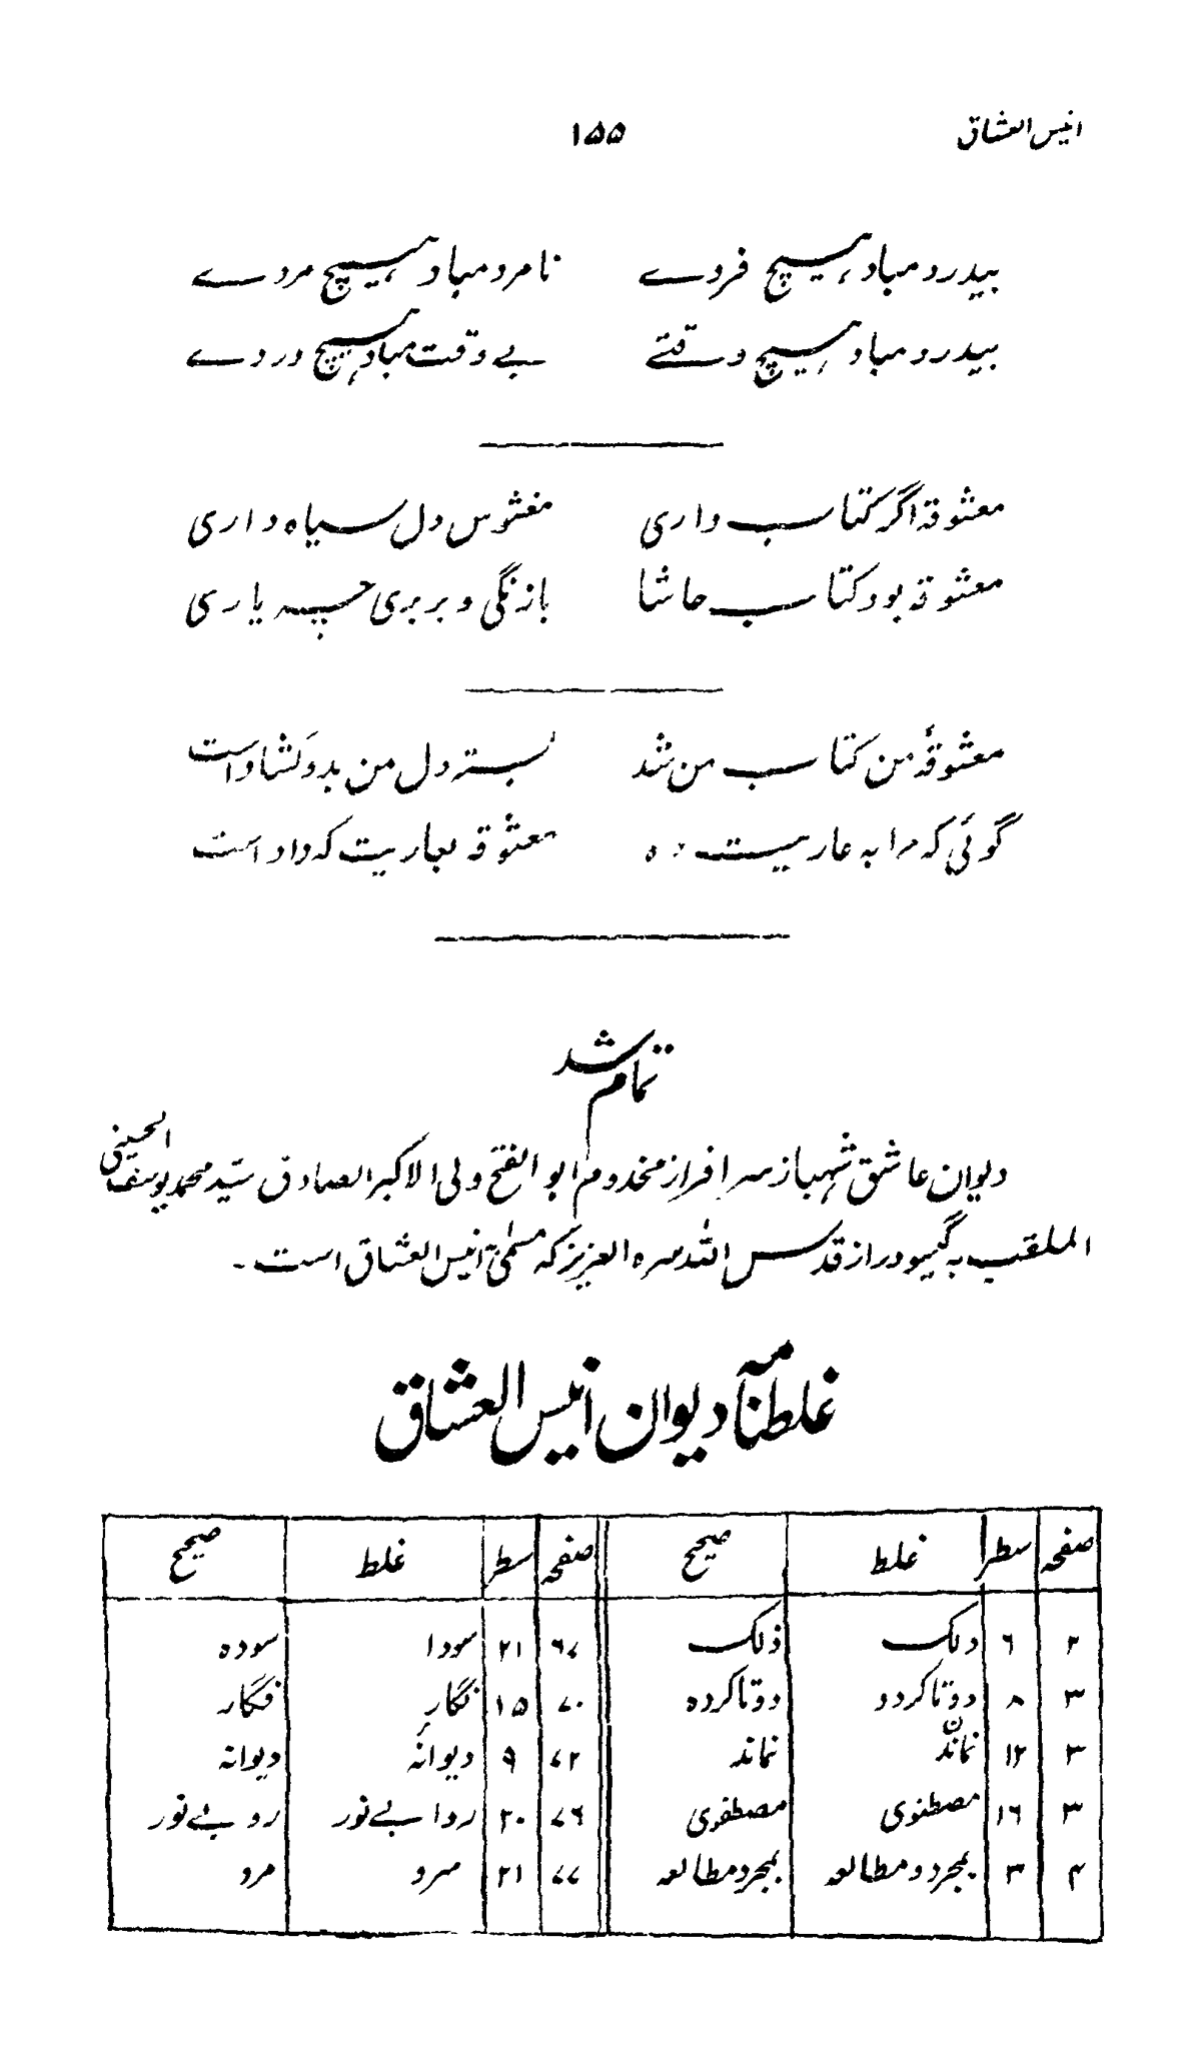 انیس العشاق ۱۵۵
بیدرد مباد ہیچ فردے نامرد مباد ہیچ مردے
بیدرد مباد ہیچ وقتے بے وقت مباد ہیچ دردے
معشوقہ اگر کتاب داری مغشوس دل سیاہ داری
معشوقہ بود کتاب حاشا بازنگی و بربری چہ یاری
معشوقۂ من کتاب من شد بستہ دل من بدو کشاد است
گوئی کہ مرا بہ عاریت دہ معشوقہ بعاریت کہ داد است
تمام شد
دیوان عاشق شہباز سرافراز مخدوم ابو الفتح ولی الاکبر الصادق سیّد محمد یوسف الحسینی
الملقب بہ گیسودراز قدس اللہ سرہ العزیز کہ مسمیٰ بہ انیس العشاق است۔
غلطنامہ دیوان انیس العشاق
صفحہ سطر غلط صحیح صفحہ سطر غلط صحیح
۲ ۶ دلک ذلک ۶۷ ۲۱ سودا سودہ
۳ ۸ دوتا کردو دوتا کردہ ۷۰ ۱۵ نگار فگار
۳ ۱۲ نماندن نماند ۷۲ ۹ دیوانۂ دیوانہ
۳ ۱۶ مصطنوی مصطفوی ۷۶ ۲۰ ردا بے نور رو بے نور
۴ ۳ بمجرد و مطالعہ بمجرد مطالعہ ۷۷ ۲۱ سرو مرو